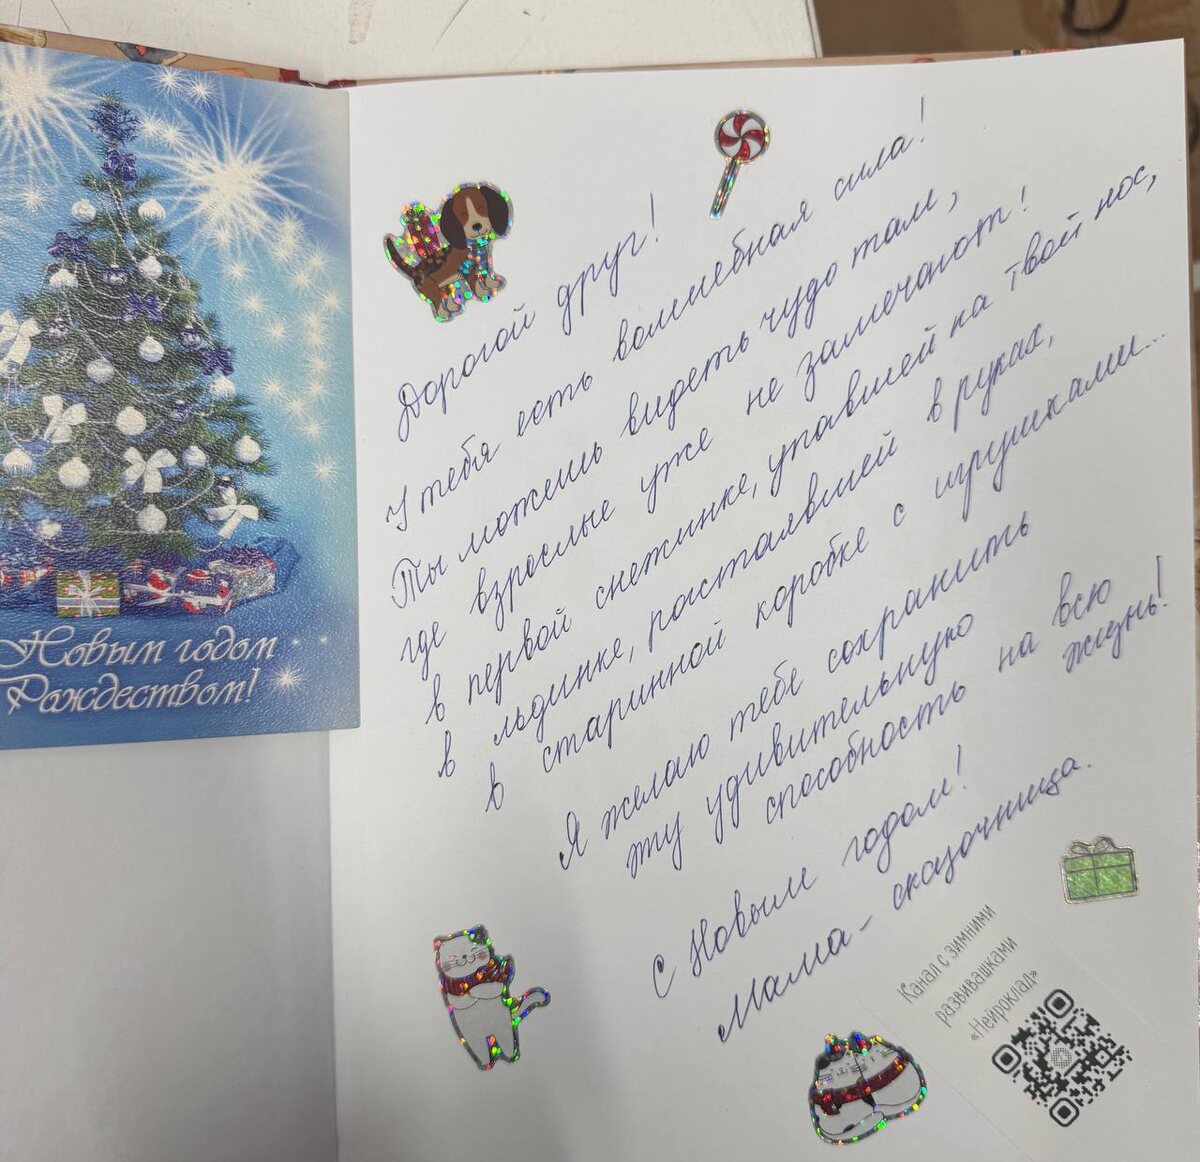 Новым годом
Рождеством!
Дорогой друг!
У тебя есть волшебная сила!
Ты можешь видеть чудо там,
где взрослые уже не замечают!
в первой снежинке, упавшей на твой нос,
в льдинке, растаявшей в руках,
в старинной коробке с игрушками...
Я желаю тебе сохранить
эту удивительную
способность на всю
жизнь!
С Новым годом!
Мама - сказочница.
Канал с зимними
развивашками
«Нейроклад»